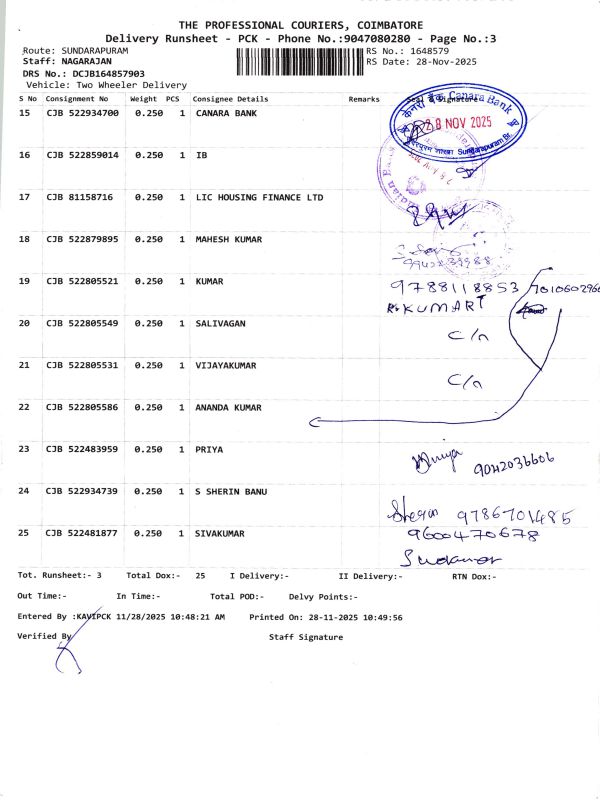 THE PROFESSIONAL COURIERS, COIMBATORE
Delivery Runsheet - PCK - Phone No.:9047080280 - Page No.:3
Route: SUNDARAPURAM
RS No.: 1648579
Staff: NAGARAJAN
RS Date: 28-Nov-2025
DRS No.: DCJB164857903
Vehicle: Two Wheeler Delivery
S No Consignment No Weight PCS Consignee Details Remarks Seal & Signature
15 CJB 522934700 0.250 1 CANARA BANK
केनरा बैंक Canara Bank
28 NOV 2025
Sundarapuram Br.
16 CJB 522859014 0.250 1 IB
17 CJB 81158716 0.250 1 LIC HOUSING FINANCE LTD
18 CJB 522879895 0.250 1 MAHESH KUMAR
19 CJB 522805521 0.250 1 KUMAR
9788118853
R.KUMART
20 CJB 522805549 0.250 1 SALIVAGAN
C/n
21 CJB 522805531 0.250 1 VIJAYAKUMAR
C/n
22 CJB 522805586 0.250 1 ANANDA KUMAR
23 CJB 522483959 0.250 1 PRIYA
9042036606
24 CJB 522934739 0.250 1 S SHERIN BANU
9786701485
25 CJB 522481877 0.250 1 SIVAKUMAR
9600470678
Tot. Runsheet:- 3 Total Dox:- 25 I Delivery:- II Delivery:- RTN Dox:-
Out Time:- In Time:- Total POD:- Delvy Points:-
Entered By :KAVIPCK 11/28/2025 10:48:21 AM Printed On: 28-11-2025 10:49:56
Verified By Staff Signature